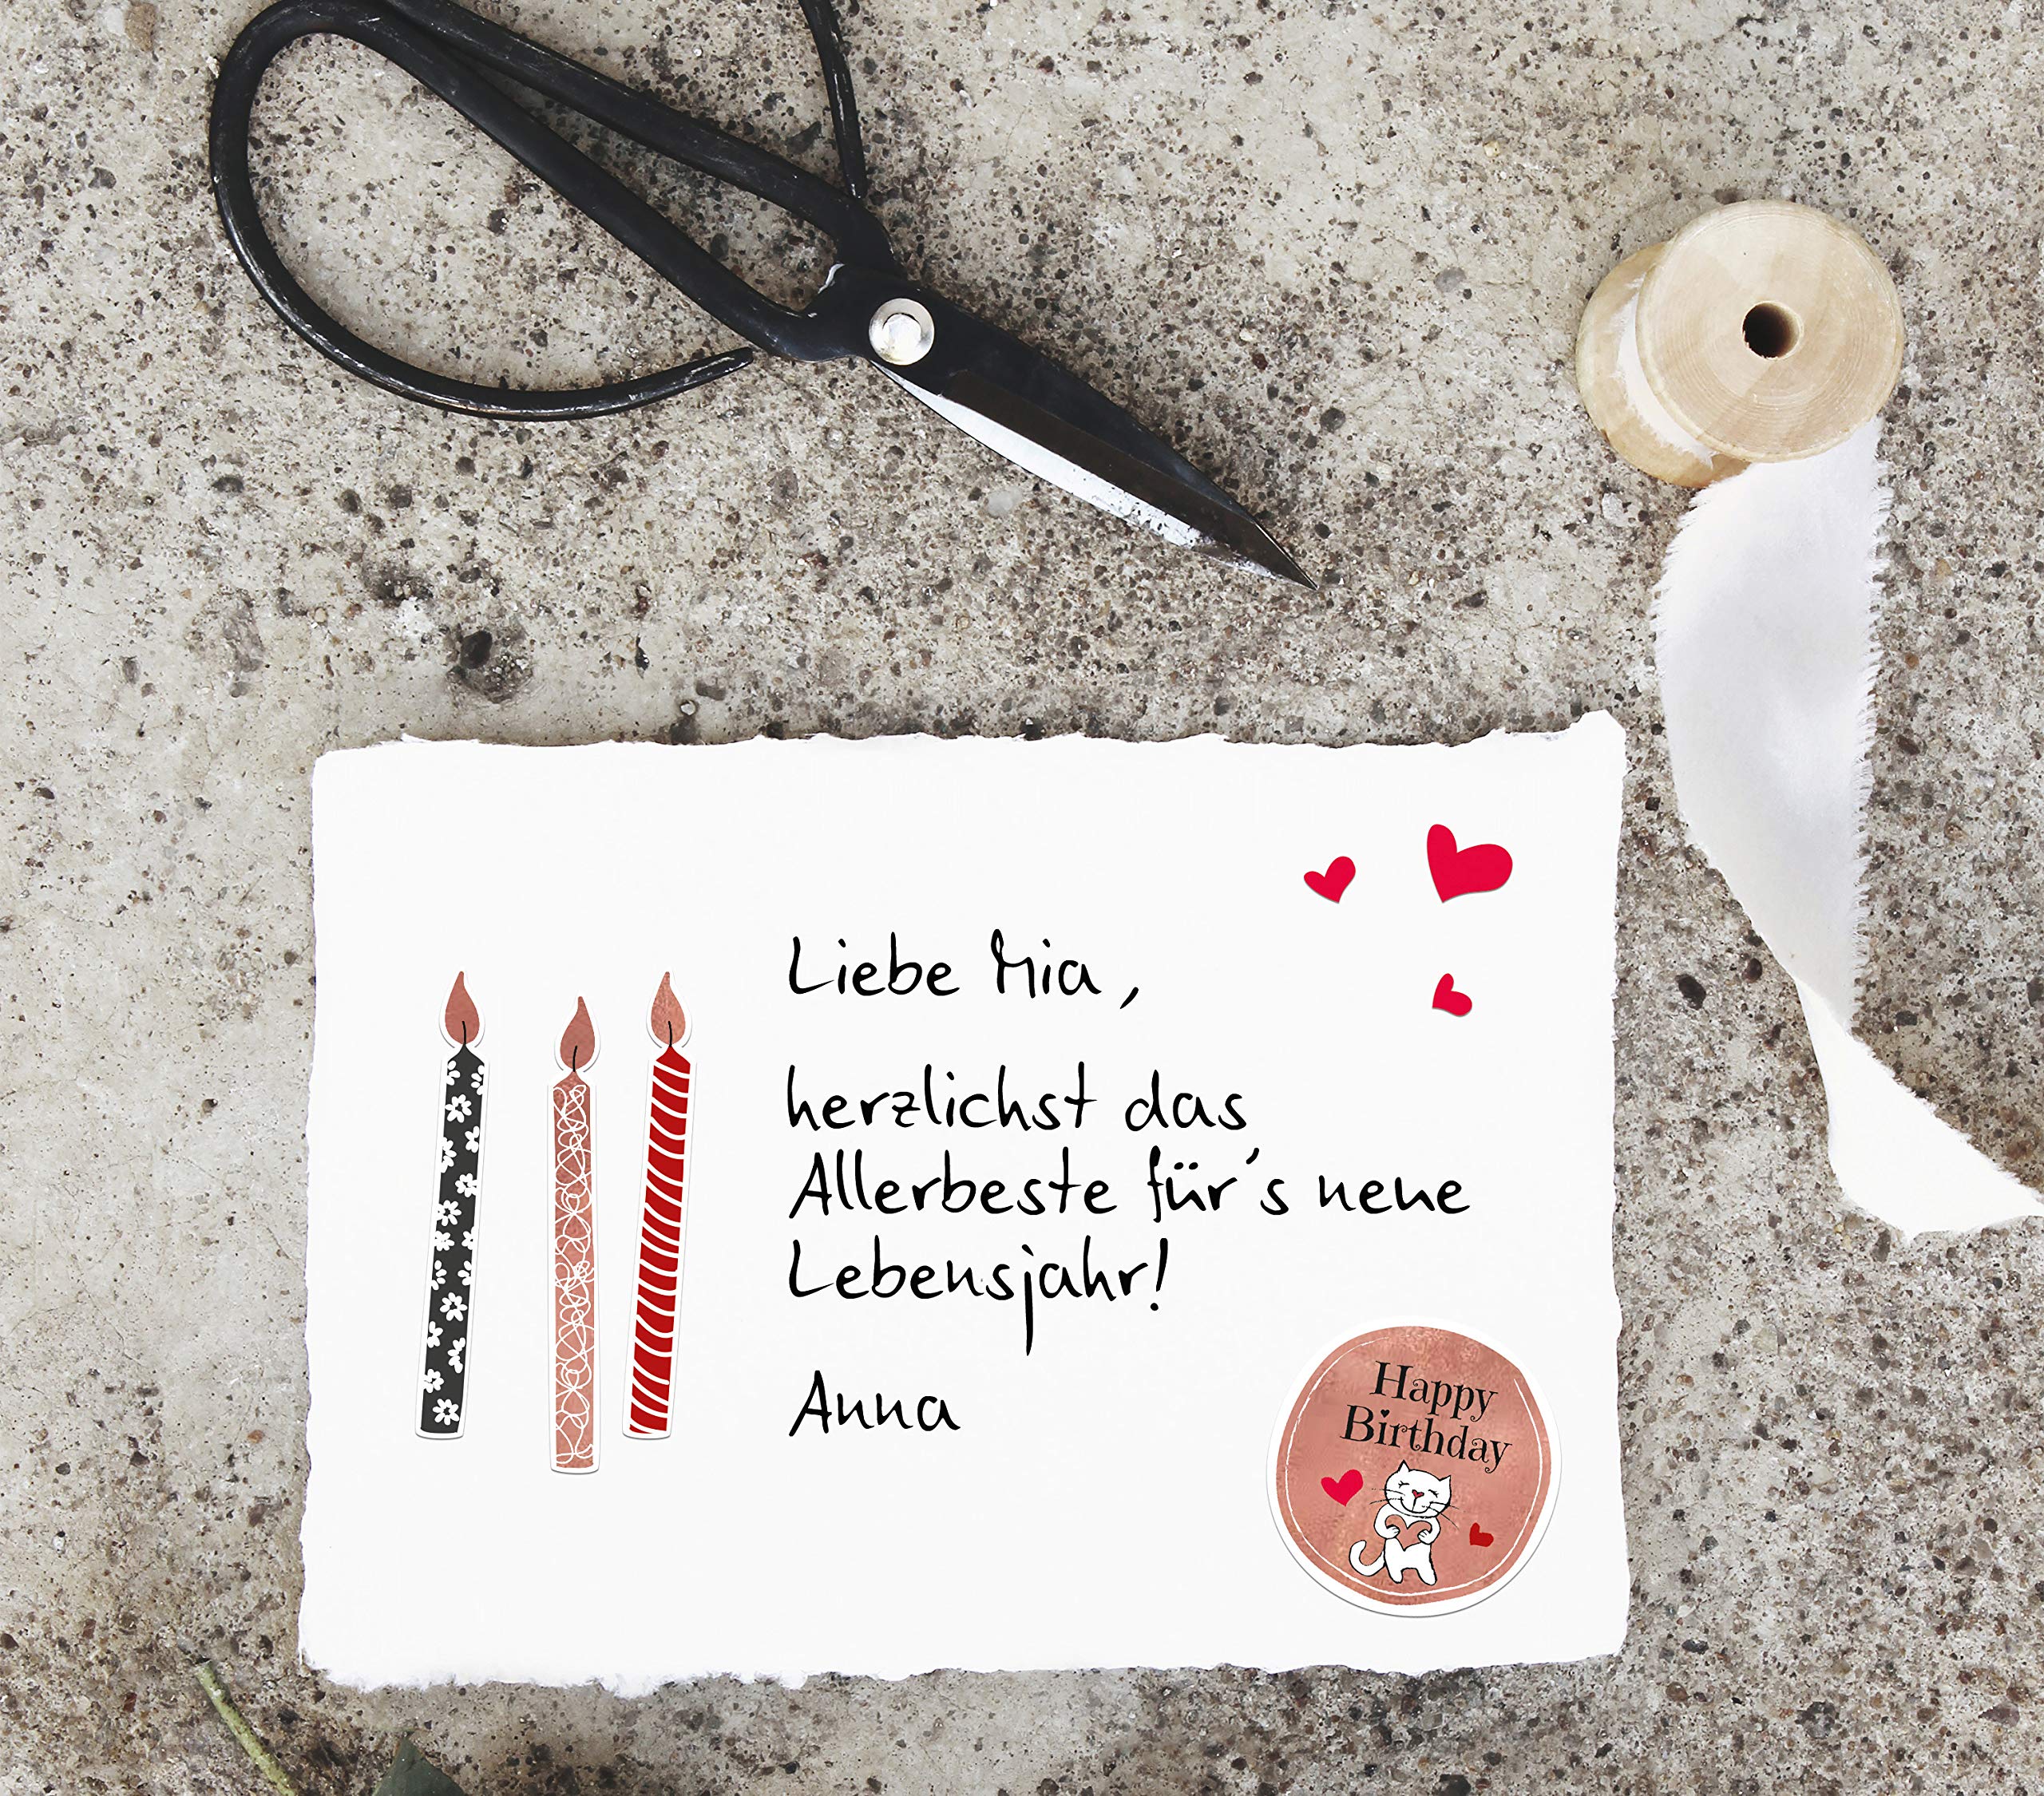 Liebe Mia,
herzlichst das
Allerbeste für's neue
Lebensjahr!
Anna
Happy
Birthday